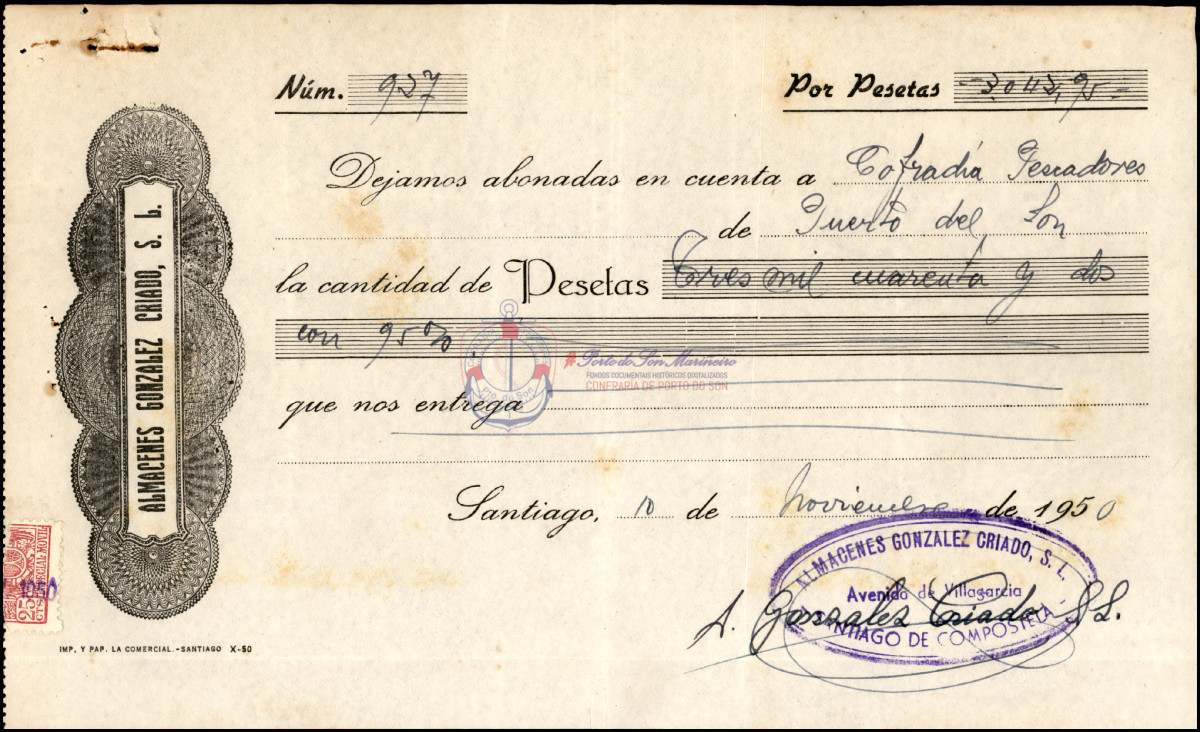 Núm. 927
Por Pesetas -3.042,95=
Dejamos abonadas en cuenta a Cofradía Pescadores
de Puerto del Son
la cantidad de Pesetas Tres mil cuarenta y dos
con 95%
#Porto do Son Mariñeiro
FONDOS DOCUMENTAIS HISTÓRICOS DIXITALIZADOS
CONFRARÍA DE PORTO DO SON
que nos entrega
Santiago, 10 de Noviembre de 1950
ALMACENES GONZALEZ CRIADO, S. L.
ALMACENES GONZALEZ CRIADO, S. L.
Avenida de Villagarcia
SANTIAGO DE COMPOSTELA
A. Gonzalez Criado S.L.
1950
25
CTS
IMP. Y PAP. LA COMERCIAL.-SANTIAGO X-50